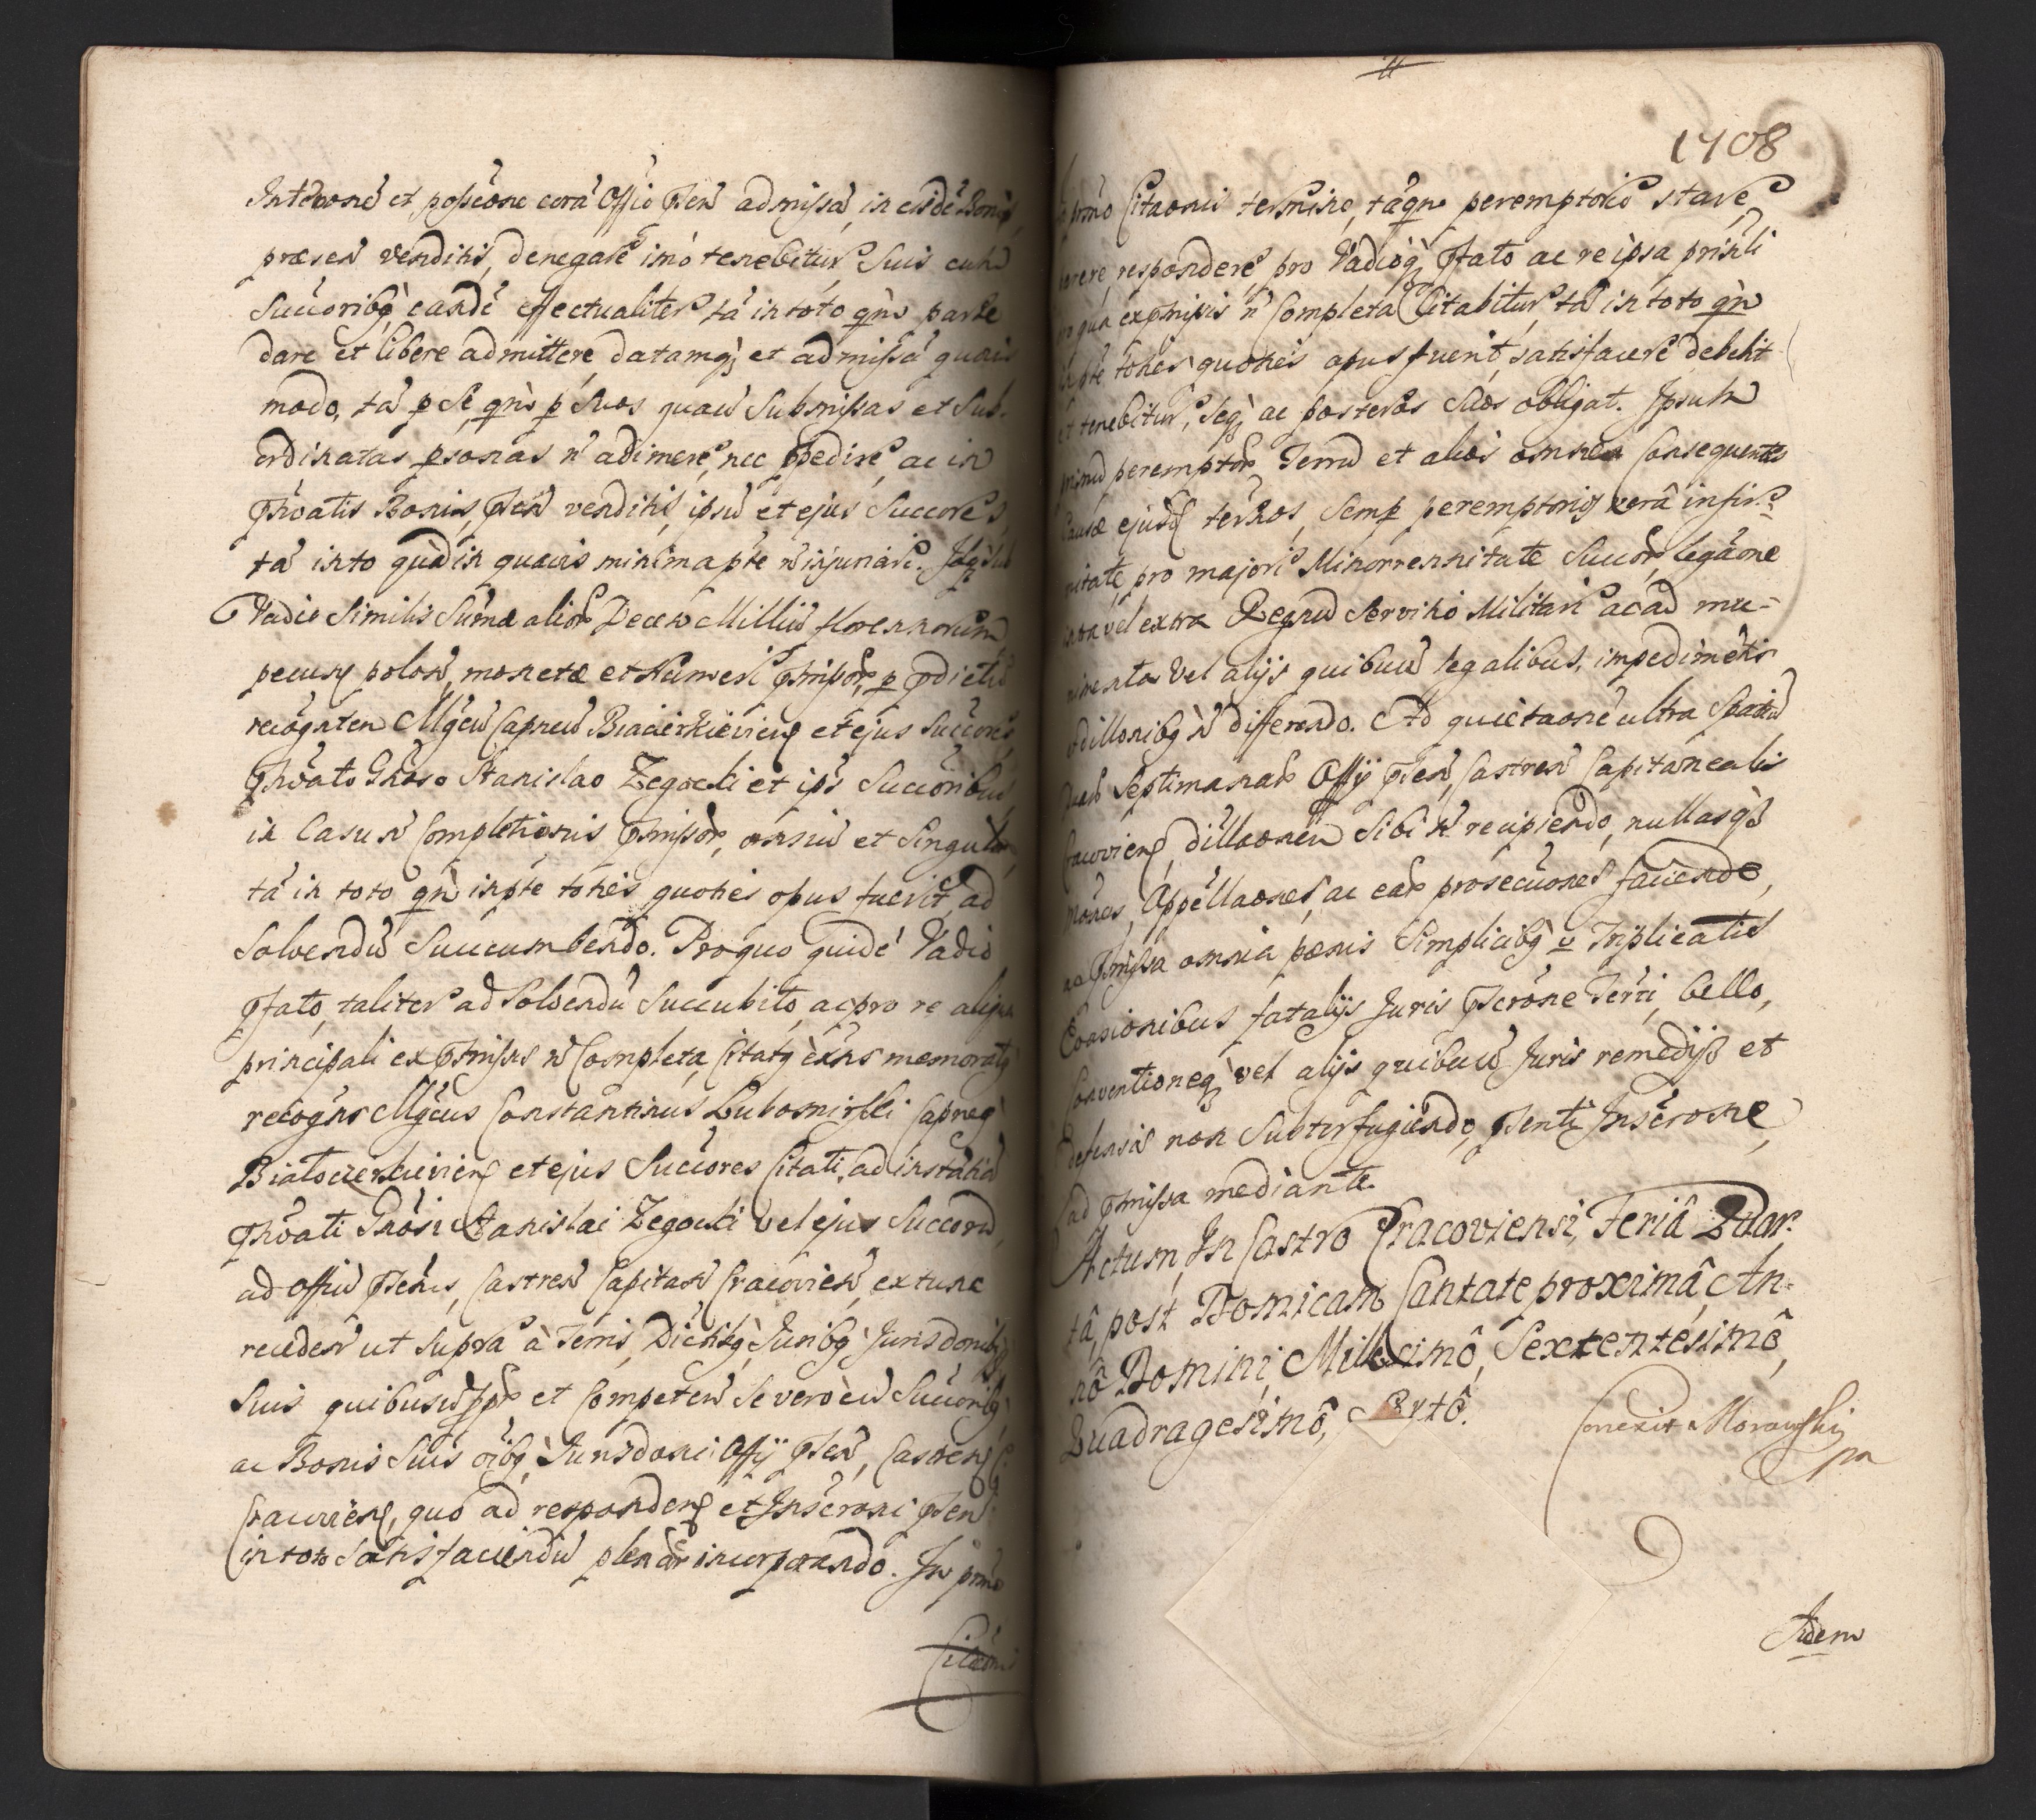 Intromone et possone cora Offio Psen admissa, in eisde Bonis,
præsen venditis, denegare imò tenebitur Suis cum
Succoribq eandē effectualiter tā in toto qm̄ parte
dare et libere admittere, datamq, et admissā quovis
modo, tā p Se, qm̄ p Suos quaū Submissas et Sub-
ordinatas psonas n̄ adimere, nec Impedire, ac in
Pnōatis Bonis, Psen venditis, ipsū et ejus Succores,
tā in to quā in quavis minima pte n̄ injuriare. Idq Sub
Vadio Similis Sumæ alior Decem Milliū florenorum
pecuniæ polon, monetæ et Numeri Pmissor, p Pdictū
recognten Mgcū Capneū Białocerkieviens et ejus Succores,
Pnōato Gnoso Stanislao Zegocki et ips Succoribus,
in Casu n̄ Completionis Pmissor, omniū et Singulor,
tā in toto qm̄ in pte toties quoties opus fuerit, ad
Solvendū Succumbendo. Pro quo quidē Vadio
Pfato, taliter ad Solvendū Succubito, ac pro re aliqua
principali ex Pmissis n̄ Completa, Citatq exns memoratq
recogns Mgcus Constantinus Lubomirski Capneq
Białocerkieviens et ejus Succores Citati, ad instātiā
Pnōati Gnosi Stanislai Zegocki vel ejus Succorū,
ad Offiū Psens, Castren Capitan Cracovien, ex tunc
receden ut supra à Terris, Dictibq, Juribq Jurisdonibq
Suis quibusvis ppr et Competen Se vero cū Succoribq
ac Bonis Suis oibq, Jurisdoni Offy Psen, Castren C.
Cracovien, quo ad responden et Inscroni Psen
in toto Satisfaciendū plenar incorporando. In primo
Citaonis
1708
primo Citaonis termino, tāqm peremptorio stare,
parere, respondere, pro Vadioq Pfato ac re ipsa prinli
pro qua ex pmissis n̄ Completa Citabitur tā in toto qm̄
in pte toties quoties opus fuerit, satisfacere debebit
et tenebitur, Seq ac posteros Suos obligat. Ipsum
primū peremptor Termū et alios omnes Consequentes
Causæ ejusd termos, Semp peremptorios verâ infir-
mitate, pro majori Minorennitate Succor, legāone
intra vel extra Regnū Servitio Militari ac ad mu-
nimenta vel alijs quibuvis legalibus, impedimētis
dillonibq n̄ differendo. Ad quietaonē ultra Spatiū
duar Septimanar Offy Psen, Castren Capitanealis
Cracoviens, dillaonem Sibi n̄ recipiendo, nullasqs
Mōnes, Appellaones, ac ear prosecuones faciendo,
ac Pmissa omnia pænis Simplicibq v Triplicatis
Evasionibus fatalijs Juris Pscrone Terri, bello,
Conventioneq, vel alijs quibuvis Juris remedijs et
defensis non Subterfugiendo, Psenti Inscrone,
ad Pmissa mediante.
Actum In Castro Cracoviensi, Feriâ Quar-
tâ, post Domicam Cantate proximâ, An-
nô Domini, Millesimô, Sexcentesimô,
Quadragesimô, Sextô.
Correxit Morawski
mp
Idem